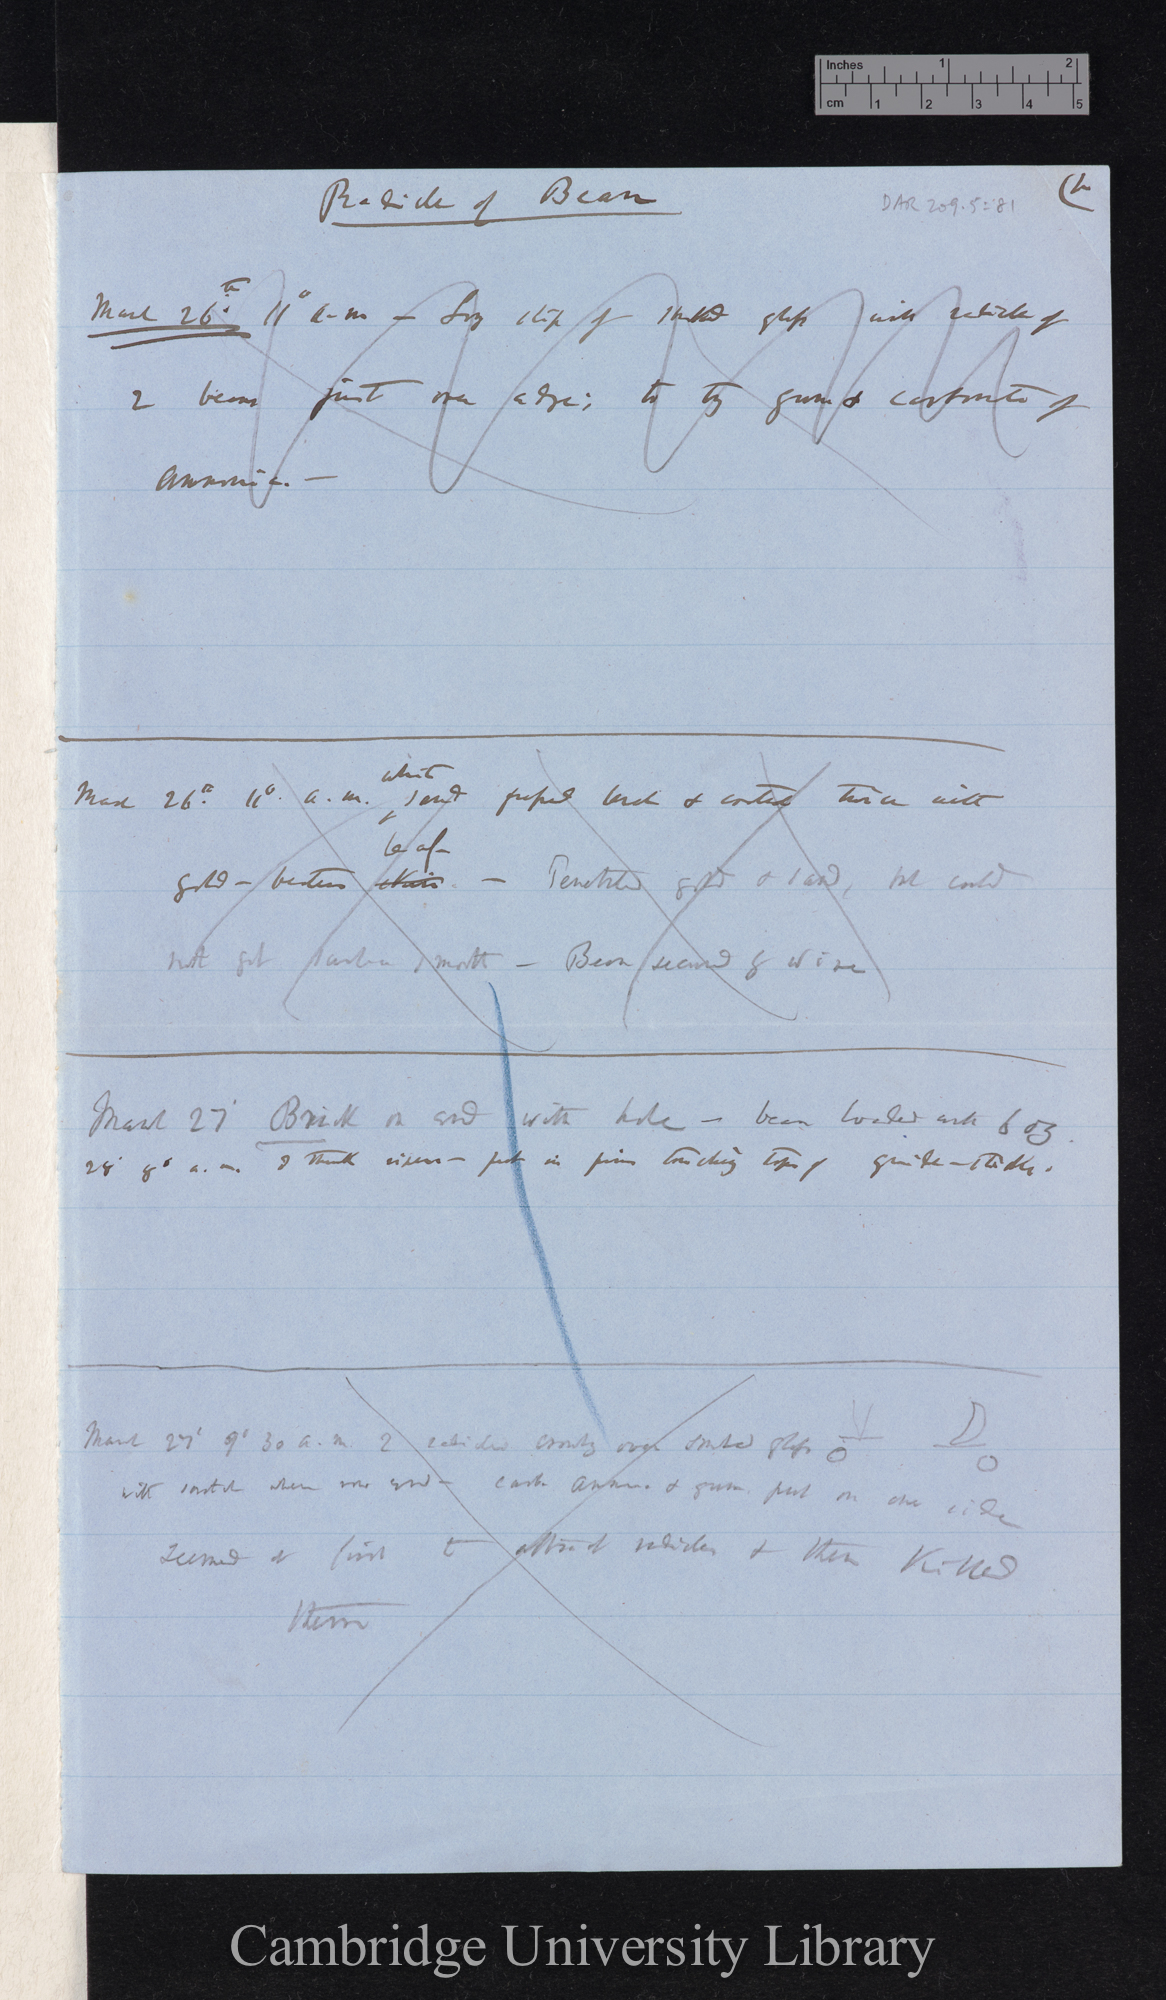 Inches 1 2
cm 1 2 3 4 5
Radicle of Bean
DAR 209.5:81
March 26th 11° a.m — Long strip of smoked glass with radicle of
2 beans just over edge; to try gum & carbonate of
Ammonia. —
white
March 26th 11° a. m. sand papered back & coated twice with
leaf
gold-beaters skin — Penetrated gold & sand, but could
not get surface smooth — Bean secured by wire
March 27' Brick on end with hole — bean loaded with 6 oz.
28' 8° a. m. I think risen — put in pins touching tops of guide-sticks.
March 27' 9° 30 a. m. 2 radicles over smoked glass
with end — carb Ammon. & gum put on one side
seemed at first to attract radicles & then Killed
them
Cambridge University Library